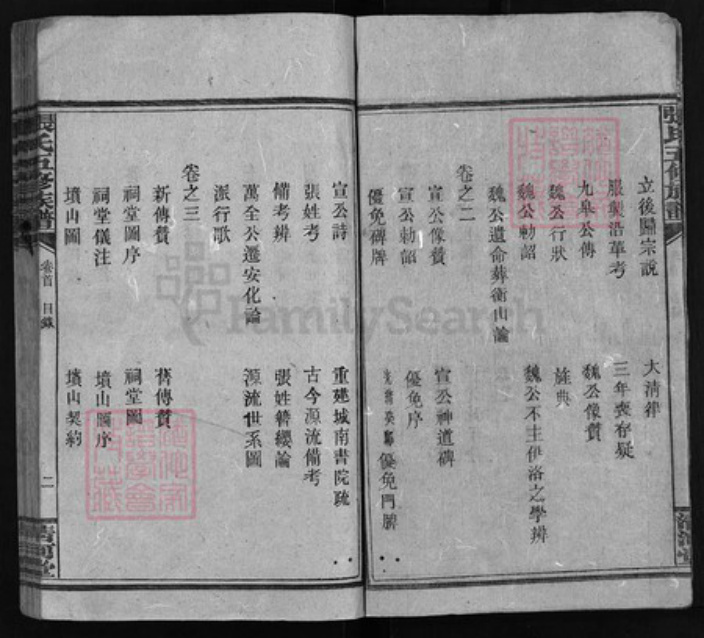 立後歸宗說 大清律
服製沿革考 三年喪存疑
九皋公傳 魏公像贊
魏公行狀 旌典
魏公勅詔 魏公不主伊洛之學辨
魏公遺命葬衡山論
卷之二
宣公像贊 宣公神道碑
宣公勅詔 優免序
優免碑牌 優免門牌
宣公詩 重建城南書院疏
張姓考 古今源流備考
備考辨 張姓簪纓論
萬全公遷安化論 源流世系圖
派行歌
卷之三
新傳贊 舊傳贊
祠堂圖序 祠堂圖
祠堂儀注 墳山圖序
墳山圖 墳山契約
張氏五修族譜
卷首 目錄
二
清河堂
FamilySearch